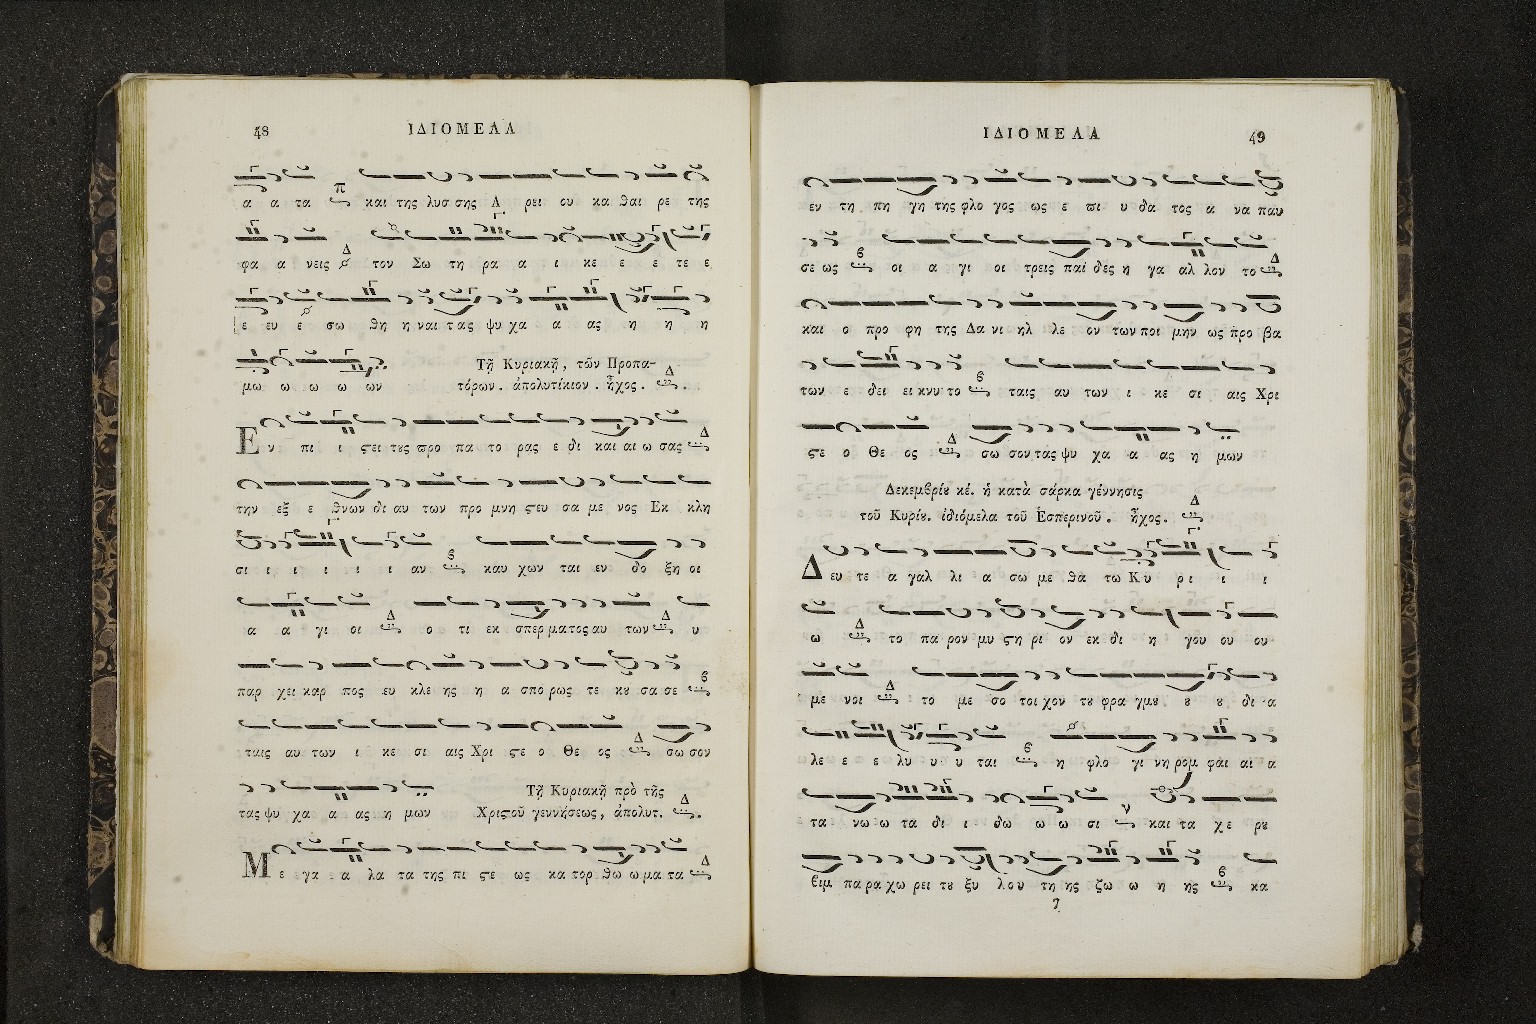 48 ΙΔΙΟΜΕΛΑ
α α τα και της λυσ σης Α ρει ου κα θαι ρε της
φα α νεις τον Σω τη ρα α ι κε ε ε τε ε
ε ευ ε σω θη η ναι τας ψυ χα α ας η η η
μω ω ω ω ων Τῇ Κυριακῇ, τῶν Προπα-
τόρων. ἀπολυτίκιον. ἦχος. Δ
Εν πι ι ϛει τȣς ϖρο πα το ρας ε δι και αι ω σας
την εξ ε θνων δι αυ των προ μνη ϛευ σα με νος Εκ κλη
σι ι ι ι ι ι αν καυ χων ται εν δο ξη οι
α α γι οι ο τι εκ σπερ ματος αυ των υ
παρ χει καρ πος ευ κλε ης η α σπο ρως τε κȣ σα σε
ταις αυ των ι κε σι αις Χρι ϛε ο Θε ος σω σον
τας ψυ χα α ας η μων Τῇ Κυριακῇ πρὸ τῆς
Χριϛοῦ γεννήσεως, ἀπολυτ. Δ
Με γα α λα τα της πι ϛε ως κα τορ θω ω μα τα
ΙΔΙΟΜΕΛΑ 49
εν τη πη γη της φλο γος ως ε ϖι υ δα τος α να παυ
σε ως οι α γι οι τρεις παι δες η γα αλ λον το
και ο προ φη της Δα νι ηλ λε ον των ποι μην ως προ βα
των ε δει ει κνυ το ταις αυ των ι κε σι αις Χρι
ϛε ο Θε ος σω σον τας ψυ χα α ας η μων
Δεκεμβρίȣ κέ. ἡ κατὰ σάρκα γέννησις
τοῦ Κυρίȣ. ἰδιόμελα τοῦ Ἑσπερινοῦ. ἦχος. Δ
Δευ τε α γαλ λι α σω με θα τω Κυ ρι ι ι
ω το πα ρον μυ ϛη ρι ον εκ δι η γου ου ου
με νοι το με σο τοι χον τȣ φρα γμȣ ȣ ȣ δι α
λε ε ε λυ υ υ ται η φλο γι νη ρομ φαι αι α
τα νω ω τα δι ι δω ω ω σι και τα χε ρȣ
βιμ πα ρα χω ρει τȣ ξυ λου τη ης ζω ω η ης κα
7